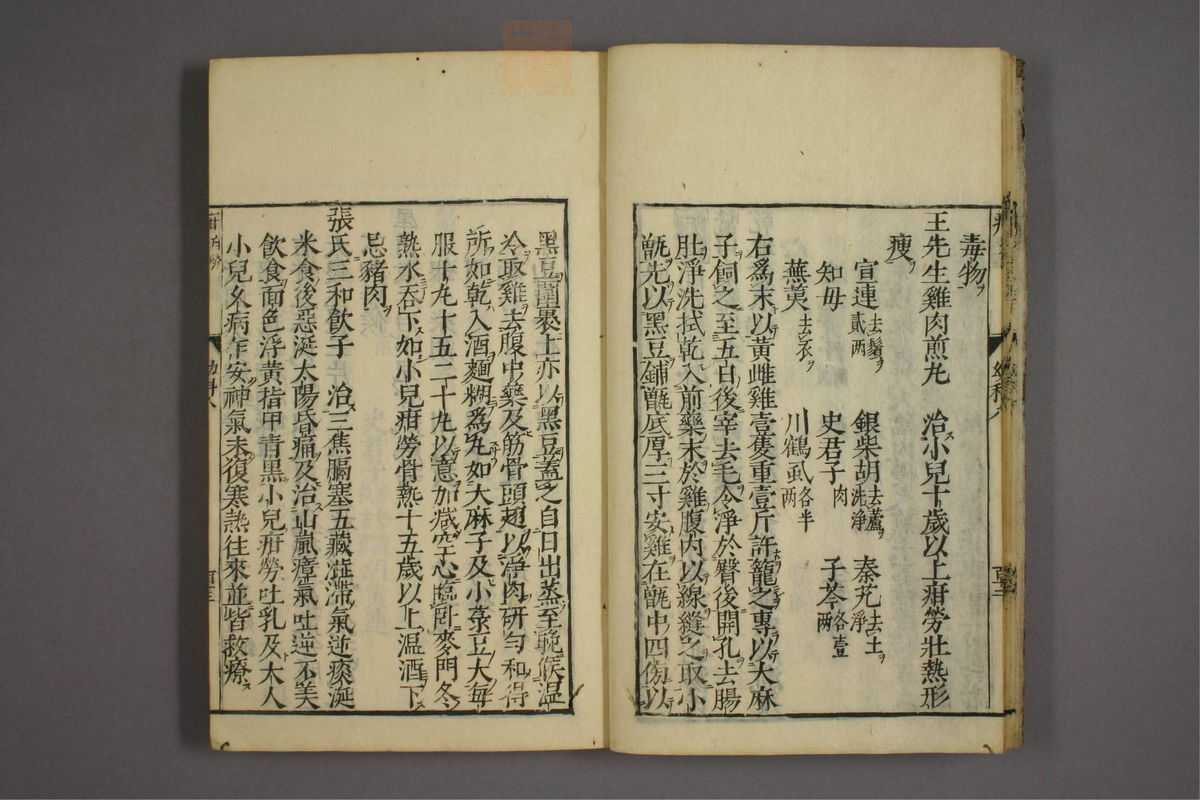 毒物
王先生雞肉煎丸　治小兒十歲以上疳勞壯熱形
瘦
宣連去鬚貳兩　銀柴胡去蘆洗淨　秦艽去土淨
知母　史君子肉　子芩各壹兩
蕪荑去衣　川鶴虱各半兩
右爲末以黃雌雞壹隻重壹斤許籠之專以大麻
子飼之至五日後宰去毛令淨於臀後開孔去腸
肚淨洗拭乾入前藥末於雞腹內以線縫之取小
甑先以黑豆鋪甑底厚三寸安雞在甑中四傍以
黑豆圍裹上亦以黑豆蓋之自日出蒸至晚候溫
冷取雞去腹中藥及筋骨頭翅以淨肉研勻和得
所如乾入酒麵糊爲丸如大麻子及小菉豆大每
服十丸十五二十丸以意加減空心臨臥麥門冬
熟水吞下如小兒疳勞骨熱十五歲以上溫酒下
忌豬肉
張氏三和飲子　治三焦膈塞五藏澁滯氣逆痰涎
米食後惡涎太陽昏痛及治山嵐瘴氣吐逆不美
飲食面色浮黃指甲青黑小兒疳勞吐乳及大人
小兒久病乍安神氣未復寒熱往來並皆救療